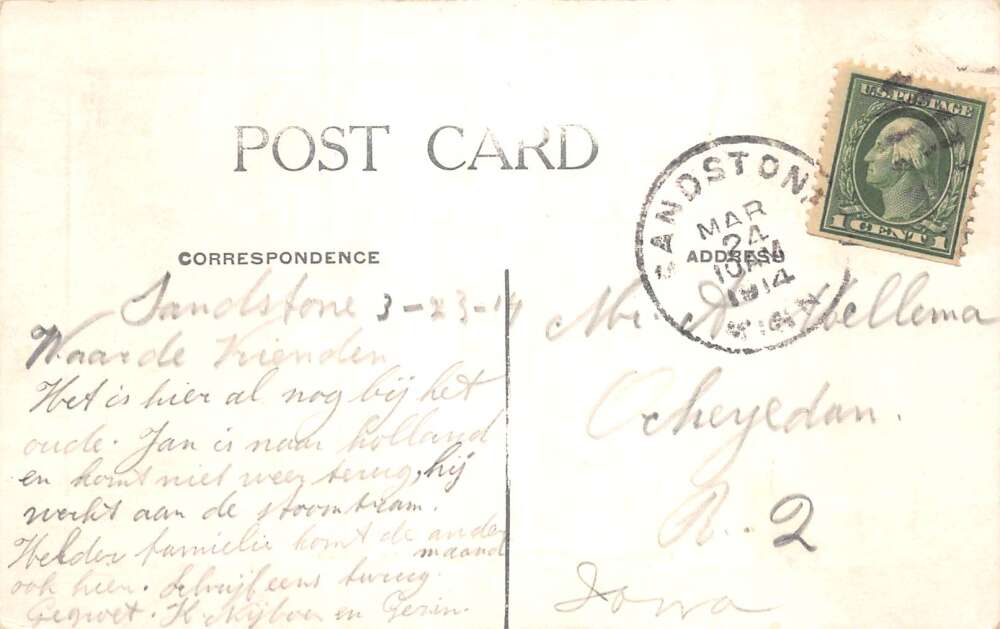 POST CARD
U.S. POSTAGE
1 CENT 1
SANDSTONE
MAR
24
10 AM
1914
MICH
CORRESPONDENCE
ADDRESS
Sandstone 3-23-14
Waarde Vrienden
Het is hier al nog bij het
oude. Jan is naar holland
en komt niet weer terug, hij
werkt aan de stoomtram.
Helder familie komt de ander
maand
ook hier. Schrijf eens terug
Gegroet. K Nijboer en Gezin.
Mr. A. Hellema
Ocheyedan.
R. 2
Iowa